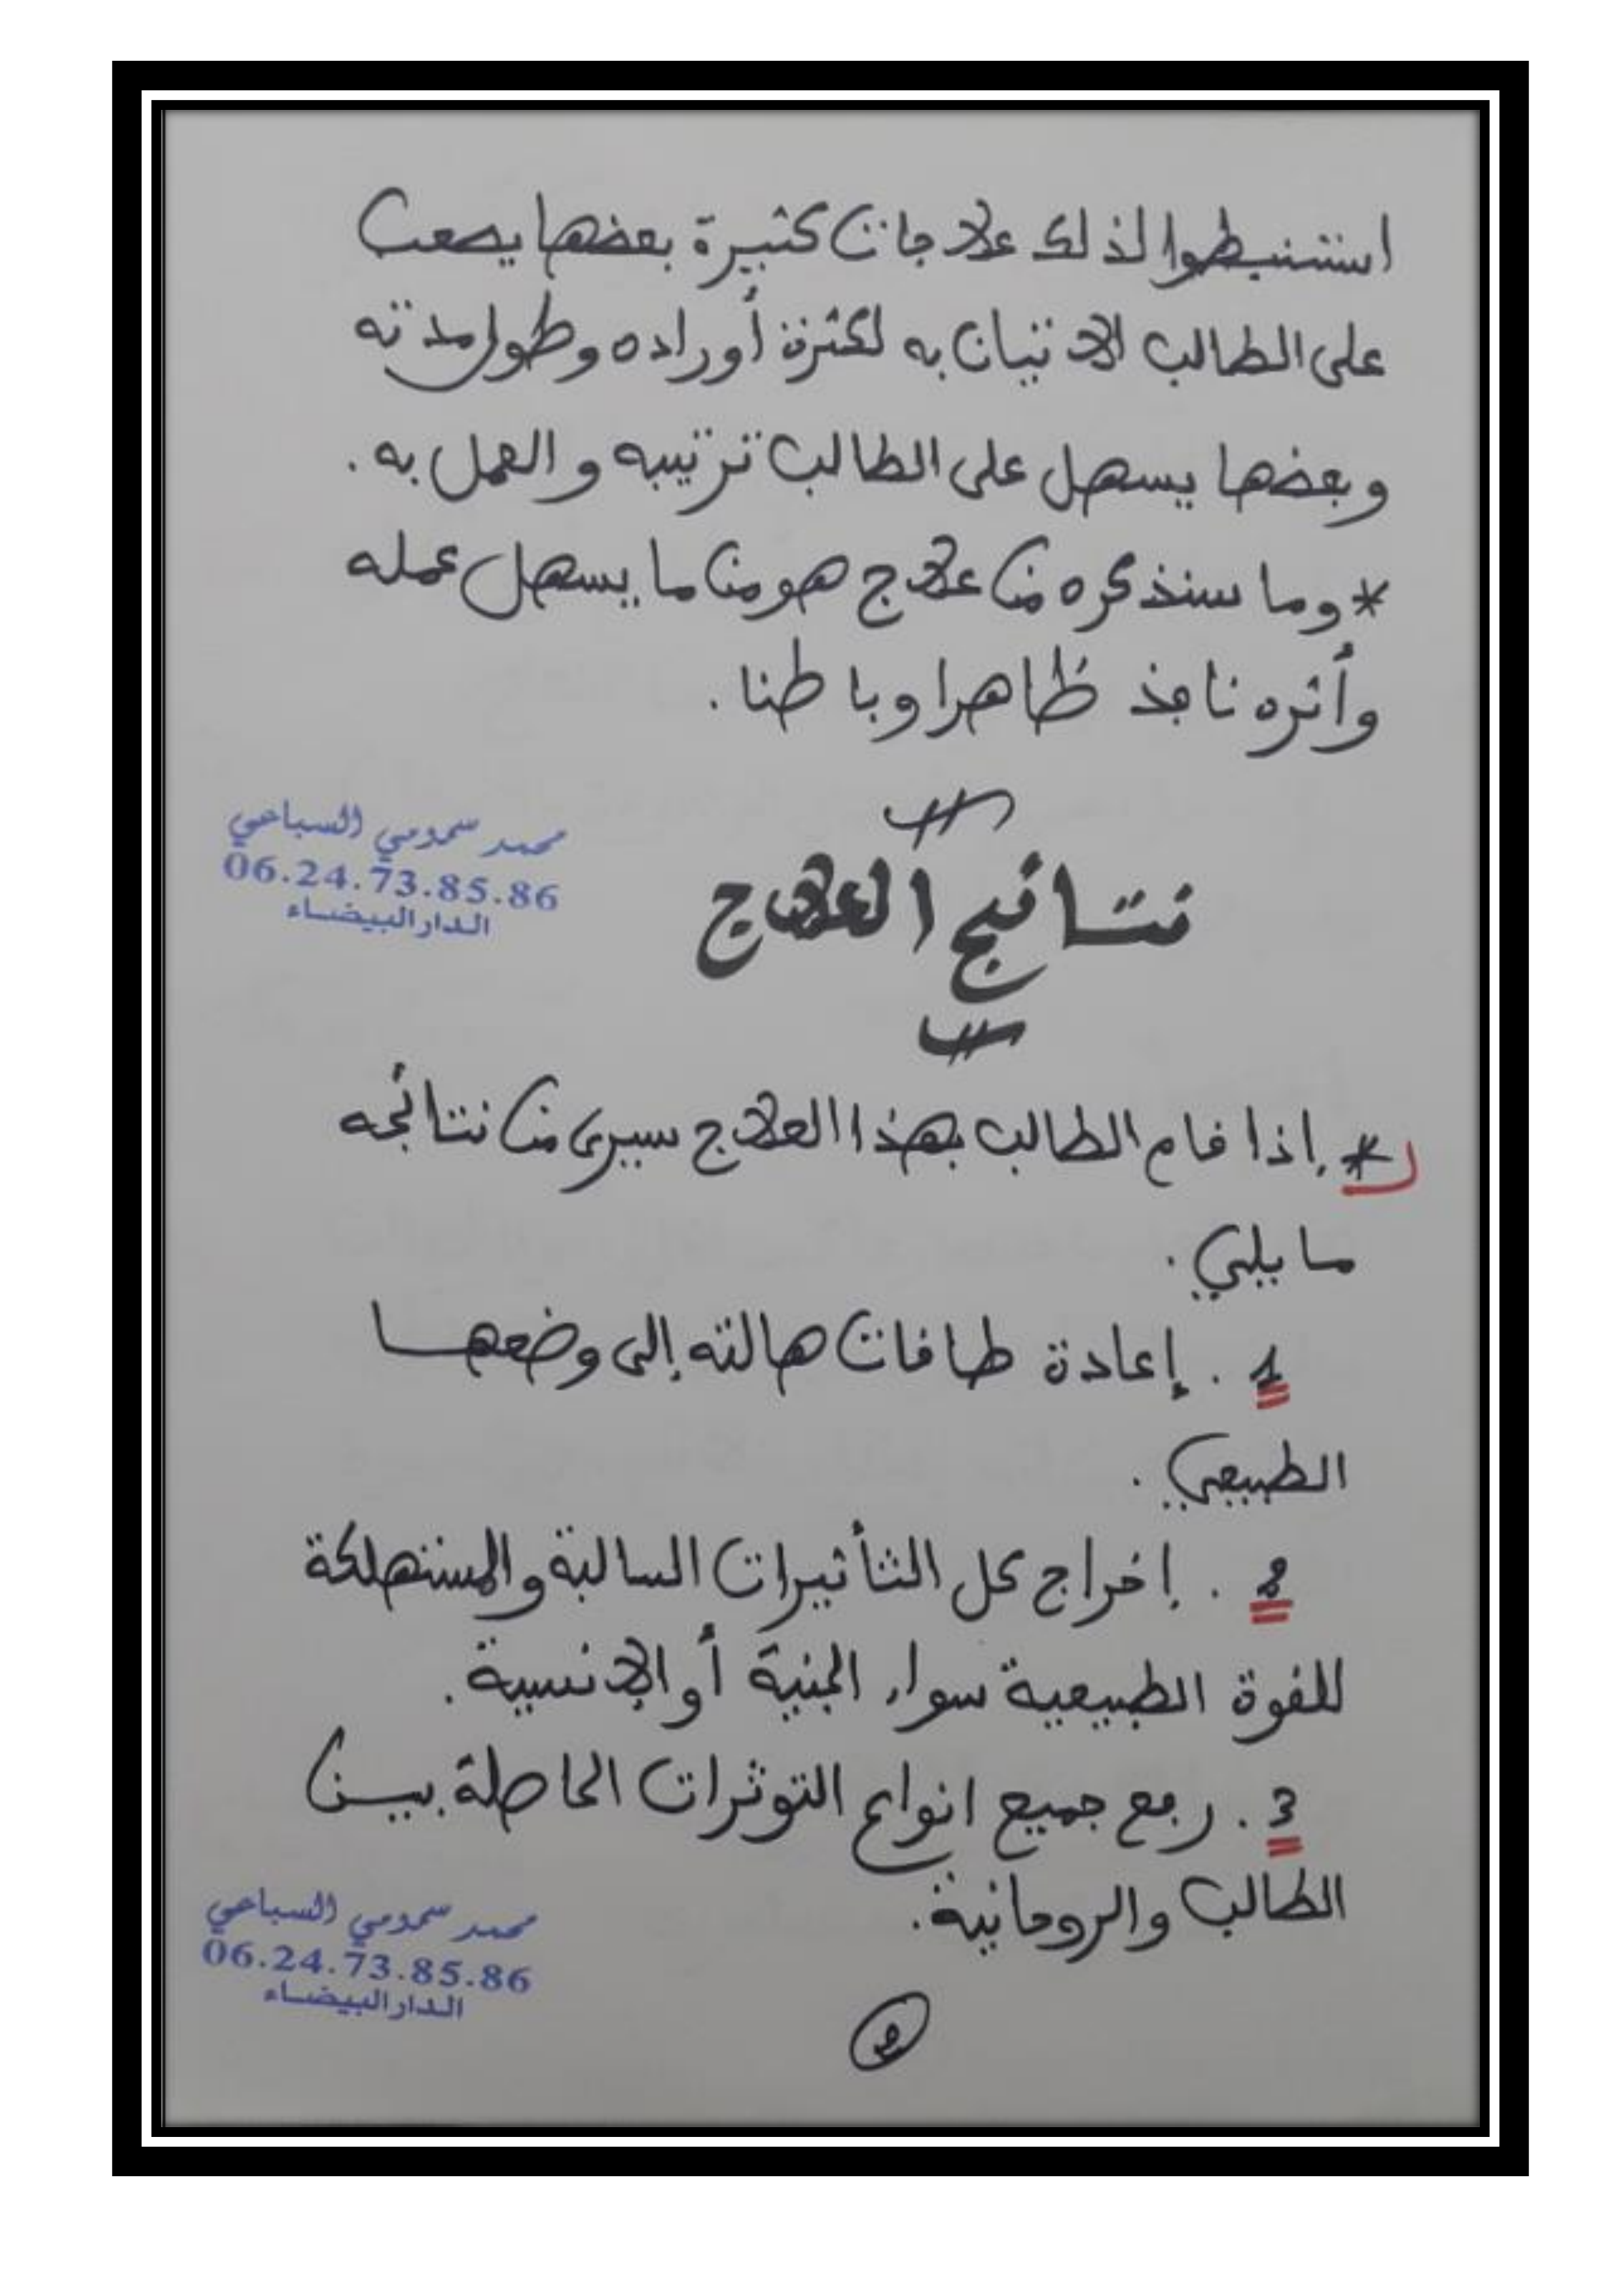 استنبطوا لذلك علاجات كثيرة بعضها يصعب
على الطالب الاتيان به لكثرة أوراده وطول مدته
وبعضها يسهل على الطالب ترتيبه والعمل به .
* وما سنذكره من علاج هو من ما يسهل عمله
وأثره نافذ ظاهرا وباطنا .
محمد سمومي السباعي
06.24.73.85.86
الدار البيضاء
نتائج العلاج
* إذا قام الطالب بهذا العلاج سيرى من نتائجه
ما يلي .
1 . إعادة طاقات هالته إلى وضعها
الطبيعي .
2 . إخراج كل التأثيرات السالبة والمستهلكة
للقوة الطبيعية سواء الجنية أو الإنسية .
3 . رفع جميع انواع التوثرات الحاصلة بين
الطالب والروحانية .
محمد سمومي السباعي
06.24.73.85.86
الدار البيضاء
2